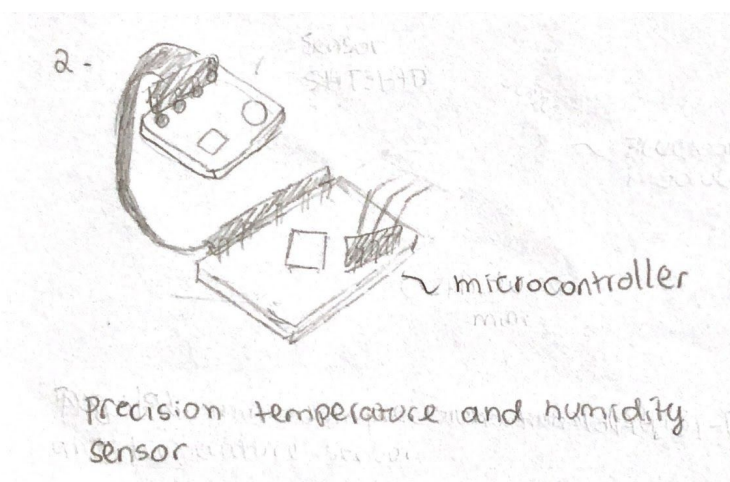 2-
Sensor
microcontroller
mini
precision temperature and humidity
sensor